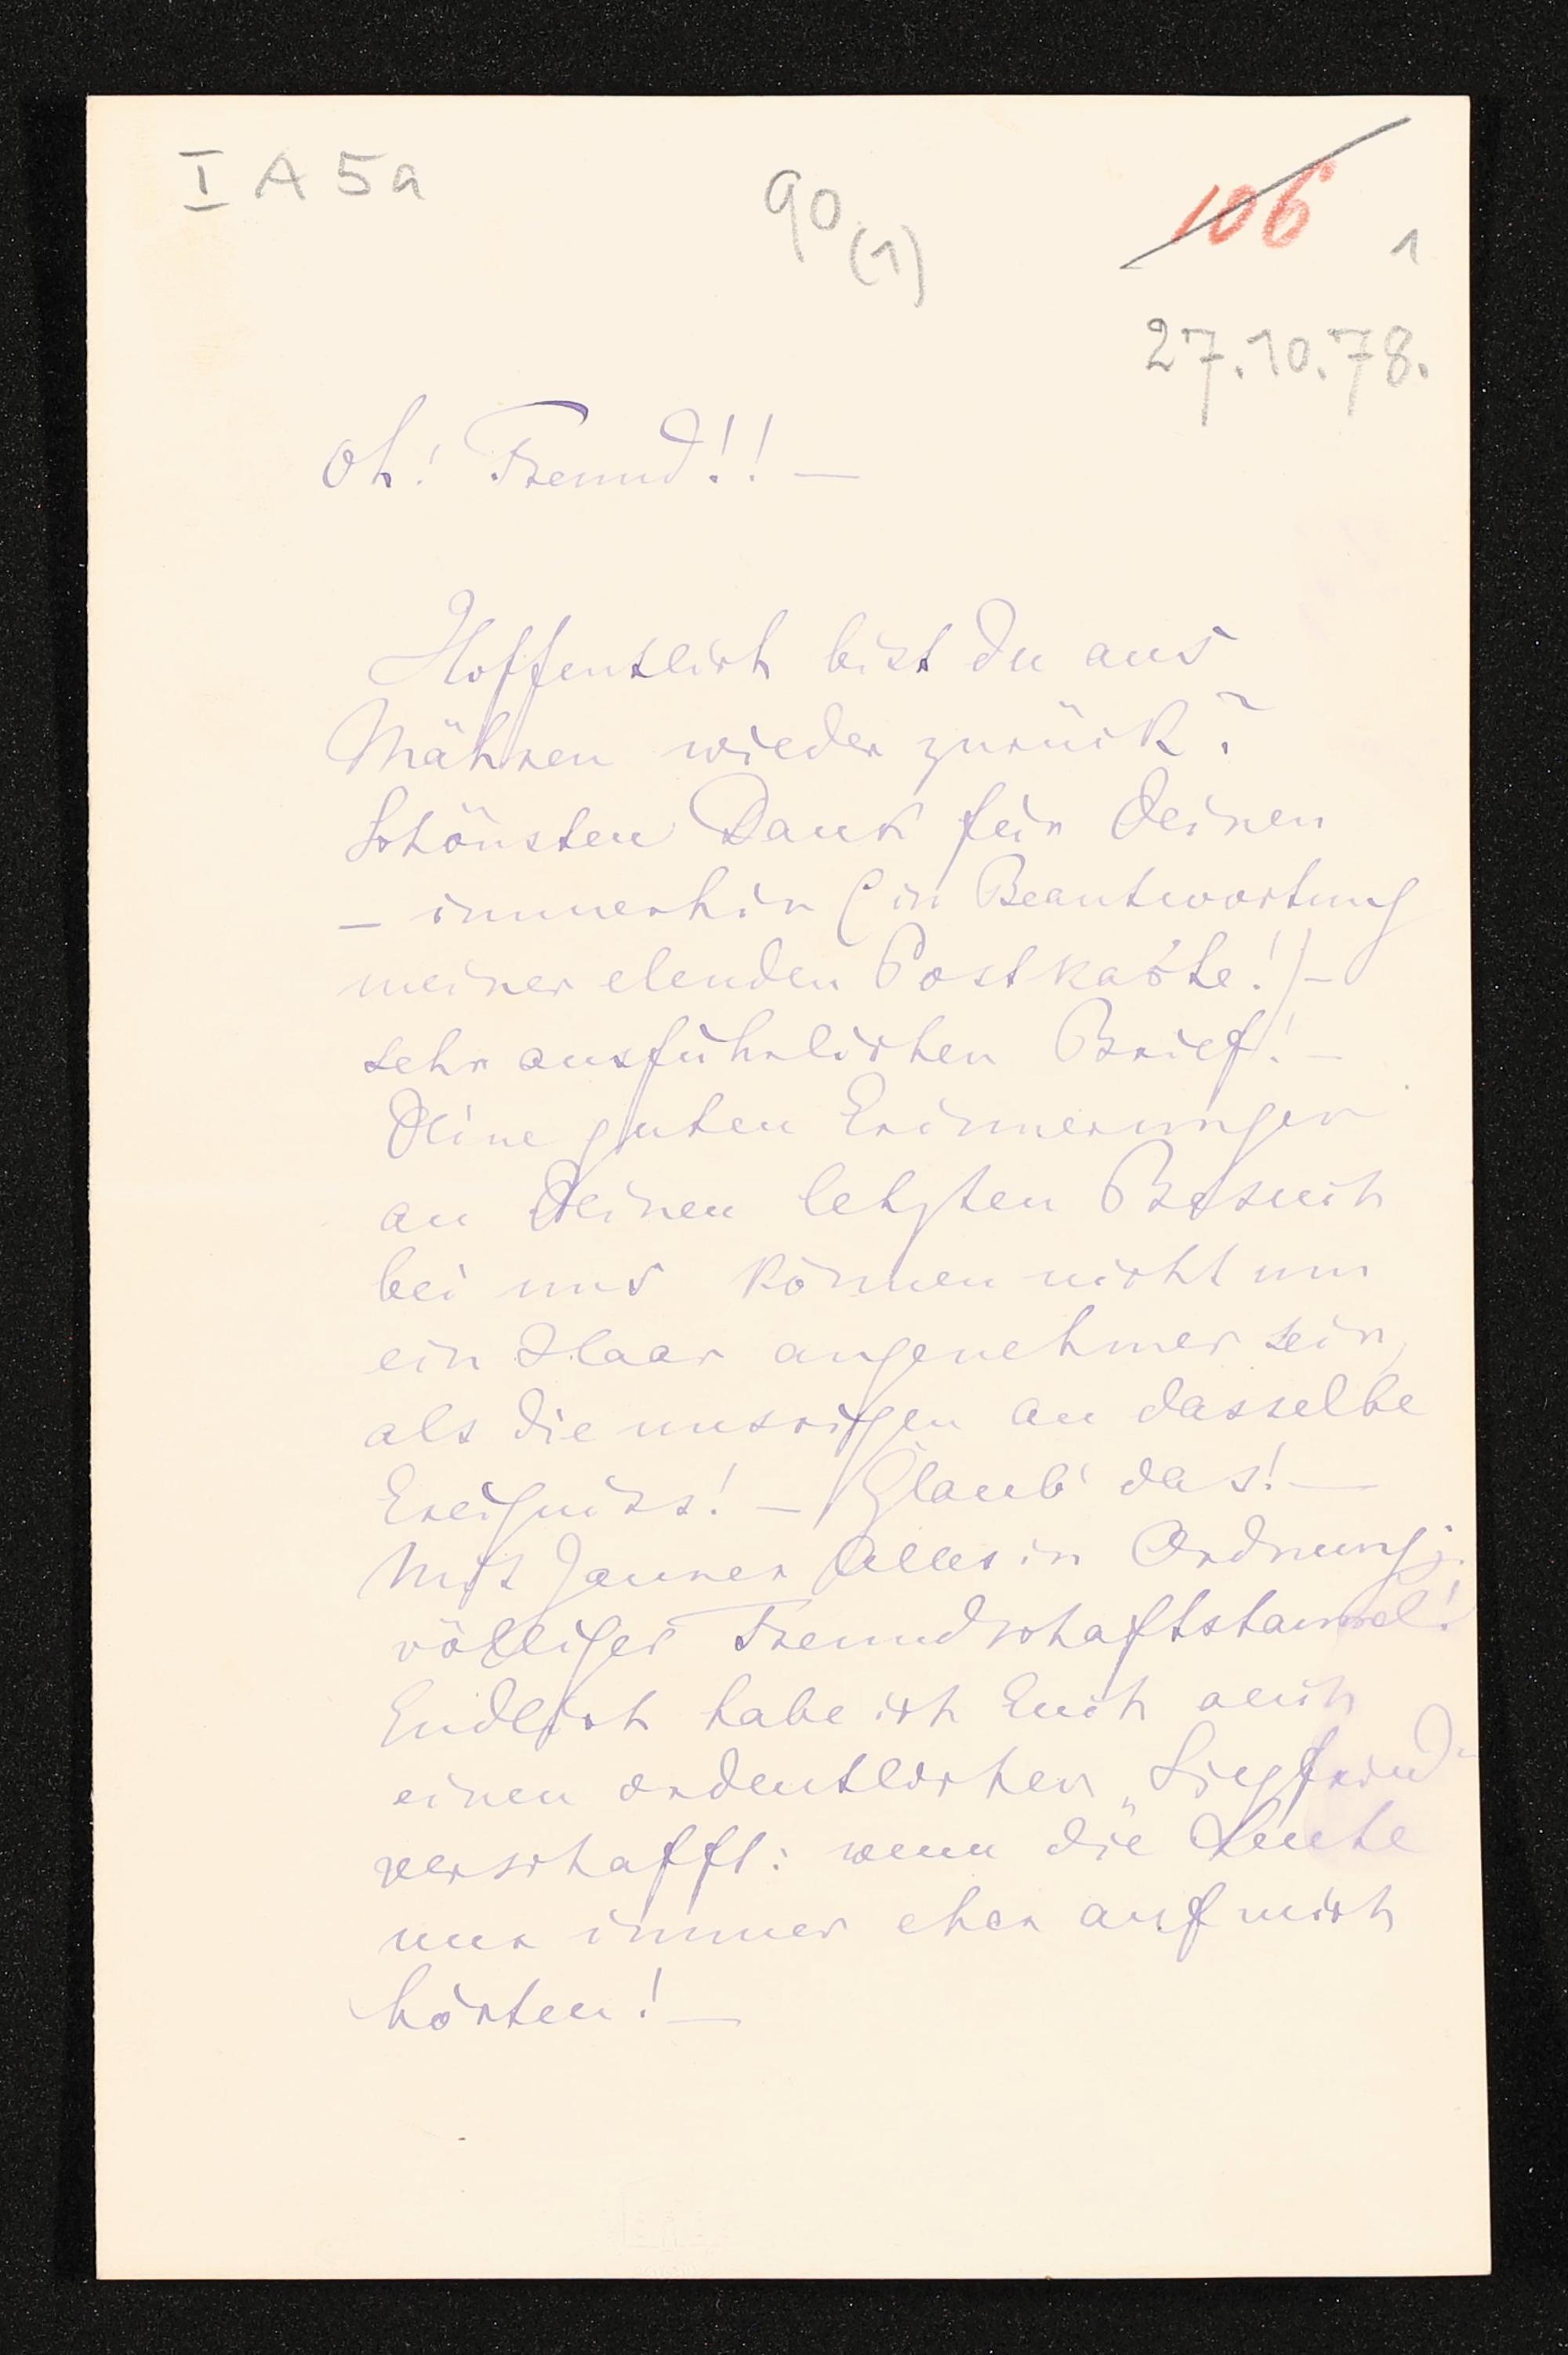 I A 5a
90 (1)
106
1
27.10.78.
Oh! Freund!! —
Hoffentlich bist Du aus
Mähren wieder zurück?
Schönsten Dank für Deinen
— immerhin (in Beantwortung
meiner elenden Postkarte!) —
sehr ausführlichen Brief! —
Deine guten Erinnerungen
an Deinen letzten Besuch
bei uns können nicht um
ein Haar angenehmer sein,
als die unsrigen an dasselbe
Ereigniss! — Glaub' das! —
Mit Jauner Alles in Ordnung;
völliger Freundschaftstaumel!
Endlich habe ich Euch auch
einen ordentlichen „Siegfried“
verschafft: wenn die Leute
nur immer eher auf mich
hörten! —